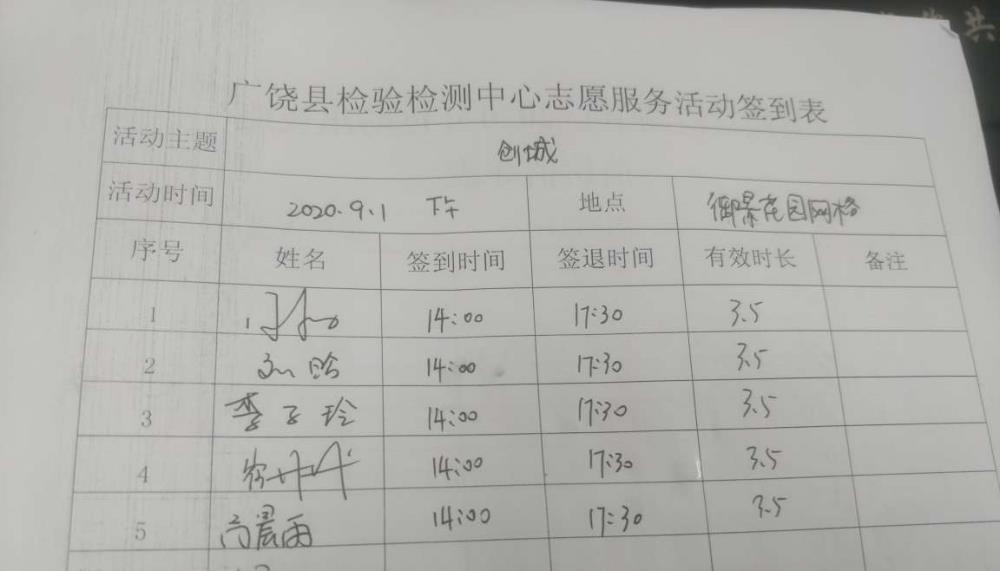 广饶县检验检测中心志愿服务活动签到表
活动主题 创城
活动时间 2020.9.1 下午 地点 御景花园网格
序号 姓名 签到时间 签退时间 有效时长 备注
1 14:00 17:30 3.5
2 14:00 17:30 3.5
3 李子玲 14:00 17:30 3.5
4 14:00 17:30 3.5
5 高晨雨 14:00 17:30 3.5
共